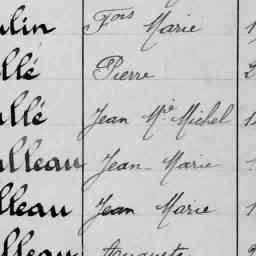 ulin Fois Marie 1
llé Pierre 2
allé Jean Mie Michel 1
alleau Jean-Marie 1
lleau Jean Marie 1
lleau Auguste